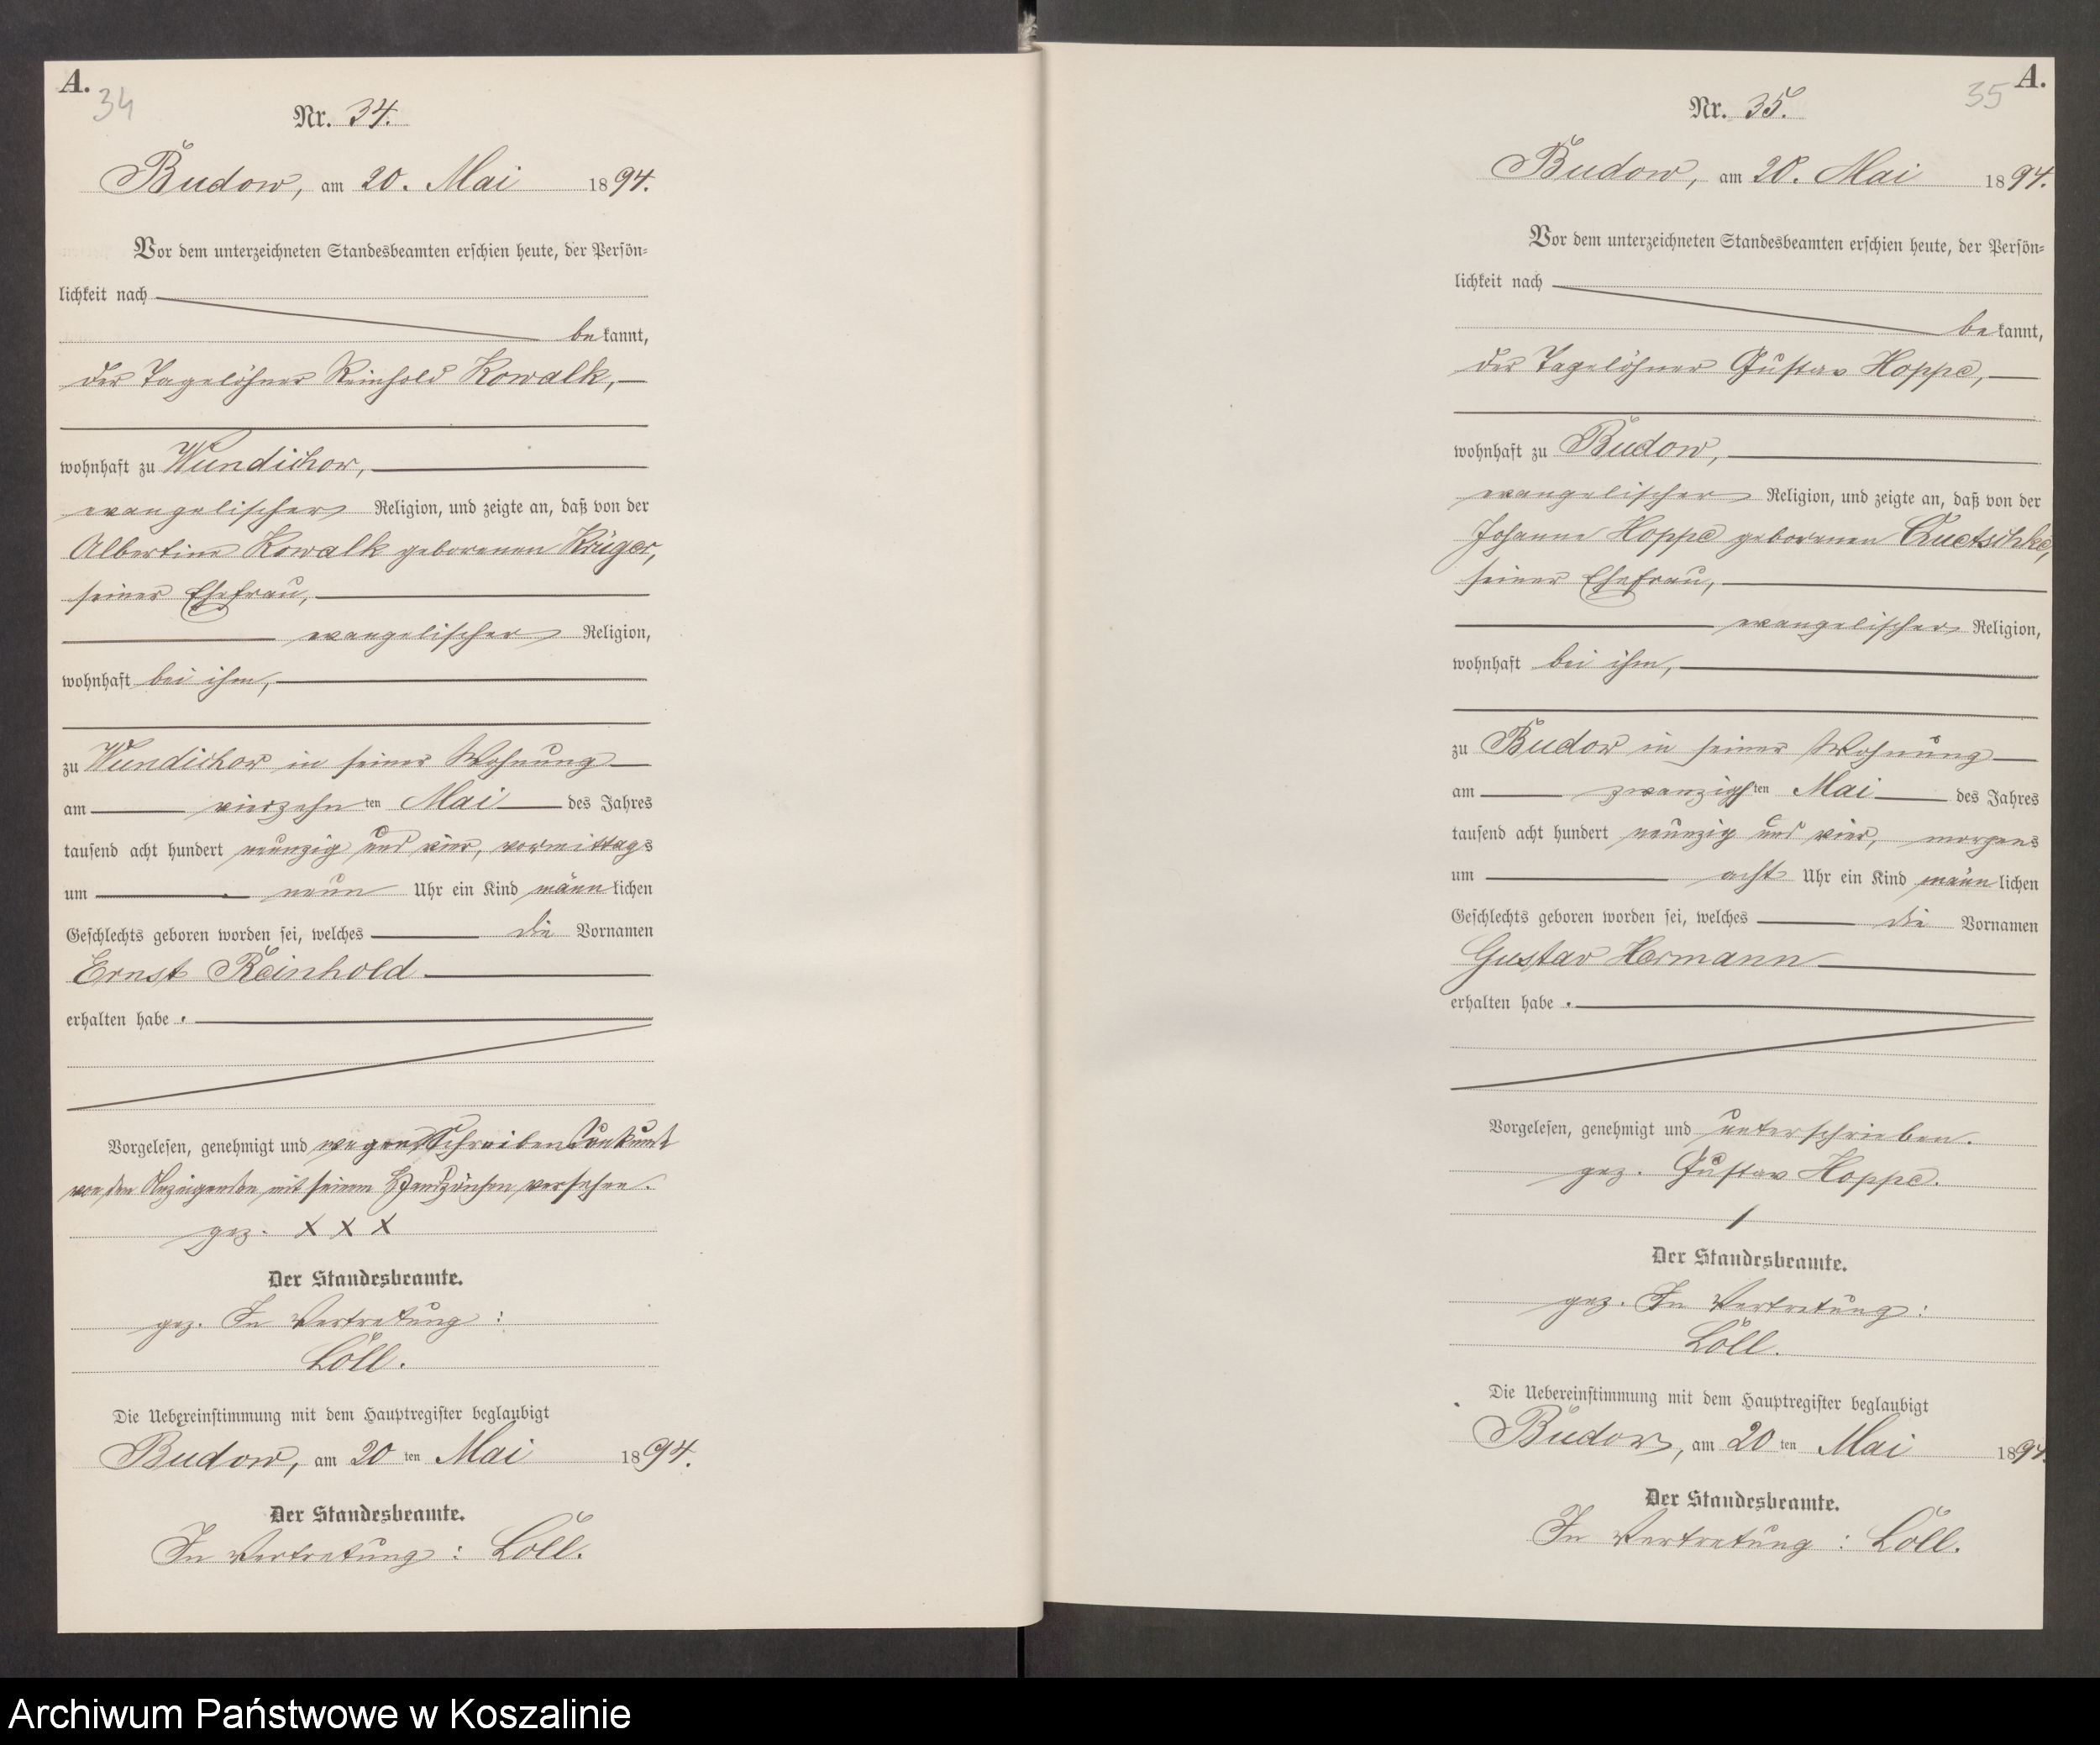 A.
34
Nr. 34.
Budow, am 20. Mai 1894.
Vor dem unterzeichneten Standesbeamten erschien heute, der Persön-
lichkeit nach
bekannt,
der Tagelöhner Reinhold Kowalk,
wohnhaft zu Wundichow,
evangelischer Religion, und zeigte an, daß von der
Albertine Kowalk geborenen Krüger,
seiner Ehefrau,
evangelischer Religion,
wohnhaft bei ihm,
zu Wundichow in seiner Wohnung
am vierzehnten Mai des Jahres
tausend acht hundert neunzig und vier, vormittags
um neun Uhr ein Kind männlichen
Geschlechts geboren worden sei, welches die Vornamen
Ernst Reinhold
erhalten habe.
Vorgelesen, genehmigt und wegen Schreibensunkunde
von dem Anzeigenden mit seinem Handzeichen versehen.
gez. X X X
Der Standesbeamte.
gez. In Vertretung:
Löll.
Die Uebereinstimmung mit dem Hauptregister beglaubigt
Budow, am 20 ten Mai 1894.
Der Standesbeamte.
In Vertretung: Löll.
35
A.
Nr. 35.
Budow, am 20. Mai 1894.
Vor dem unterzeichneten Standesbeamten erschien heute, der Persön-
lichkeit nach
bekannt,
der Tagelöhner Gustav Hoppe,
wohnhaft zu Budow,
evangelischer Religion, und zeigte an, daß von der
Johanne Hoppe geborenen Quetschke,
seiner Ehefrau,
evangelischer Religion,
wohnhaft bei ihm,
zu Budow in seiner Wohnung
am zwanzigsten Mai des Jahres
tausend acht hundert neunzig und vier, morgens
um acht Uhr ein Kind männlichen
Geschlechts geboren worden sei, welches die Vornamen
Gustav Hermann
erhalten habe.
Vorgelesen, genehmigt und unterschrieben.
gez. Gustav Hoppe.
Der Standesbeamte.
gez. In Vertretung:
Löll.
Die Uebereinstimmung mit dem Hauptregister beglaubigt
Budow, am 20 ten Mai 1894.
Der Standesbeamte.
In Vertretung: Löll.
Archiwum Państwowe w Koszalinie